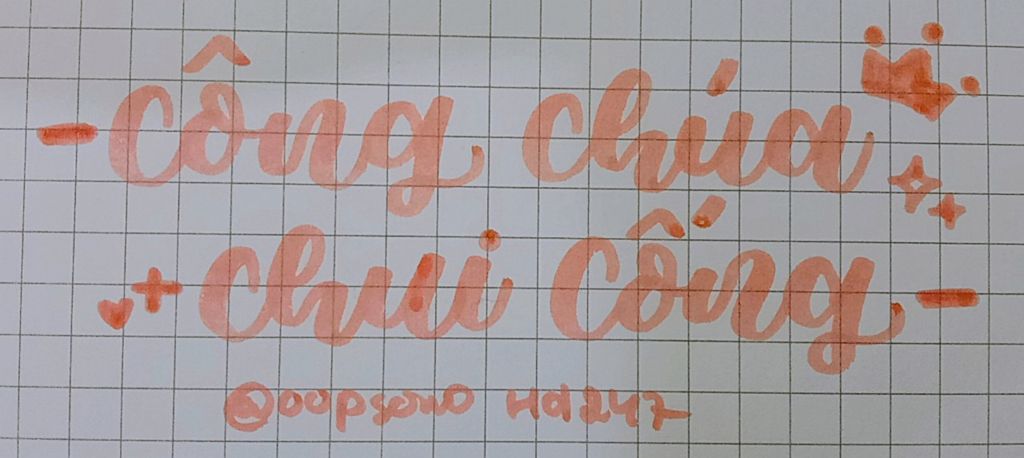 - Công chúa
+ chui cống -
@oopsono Hd247